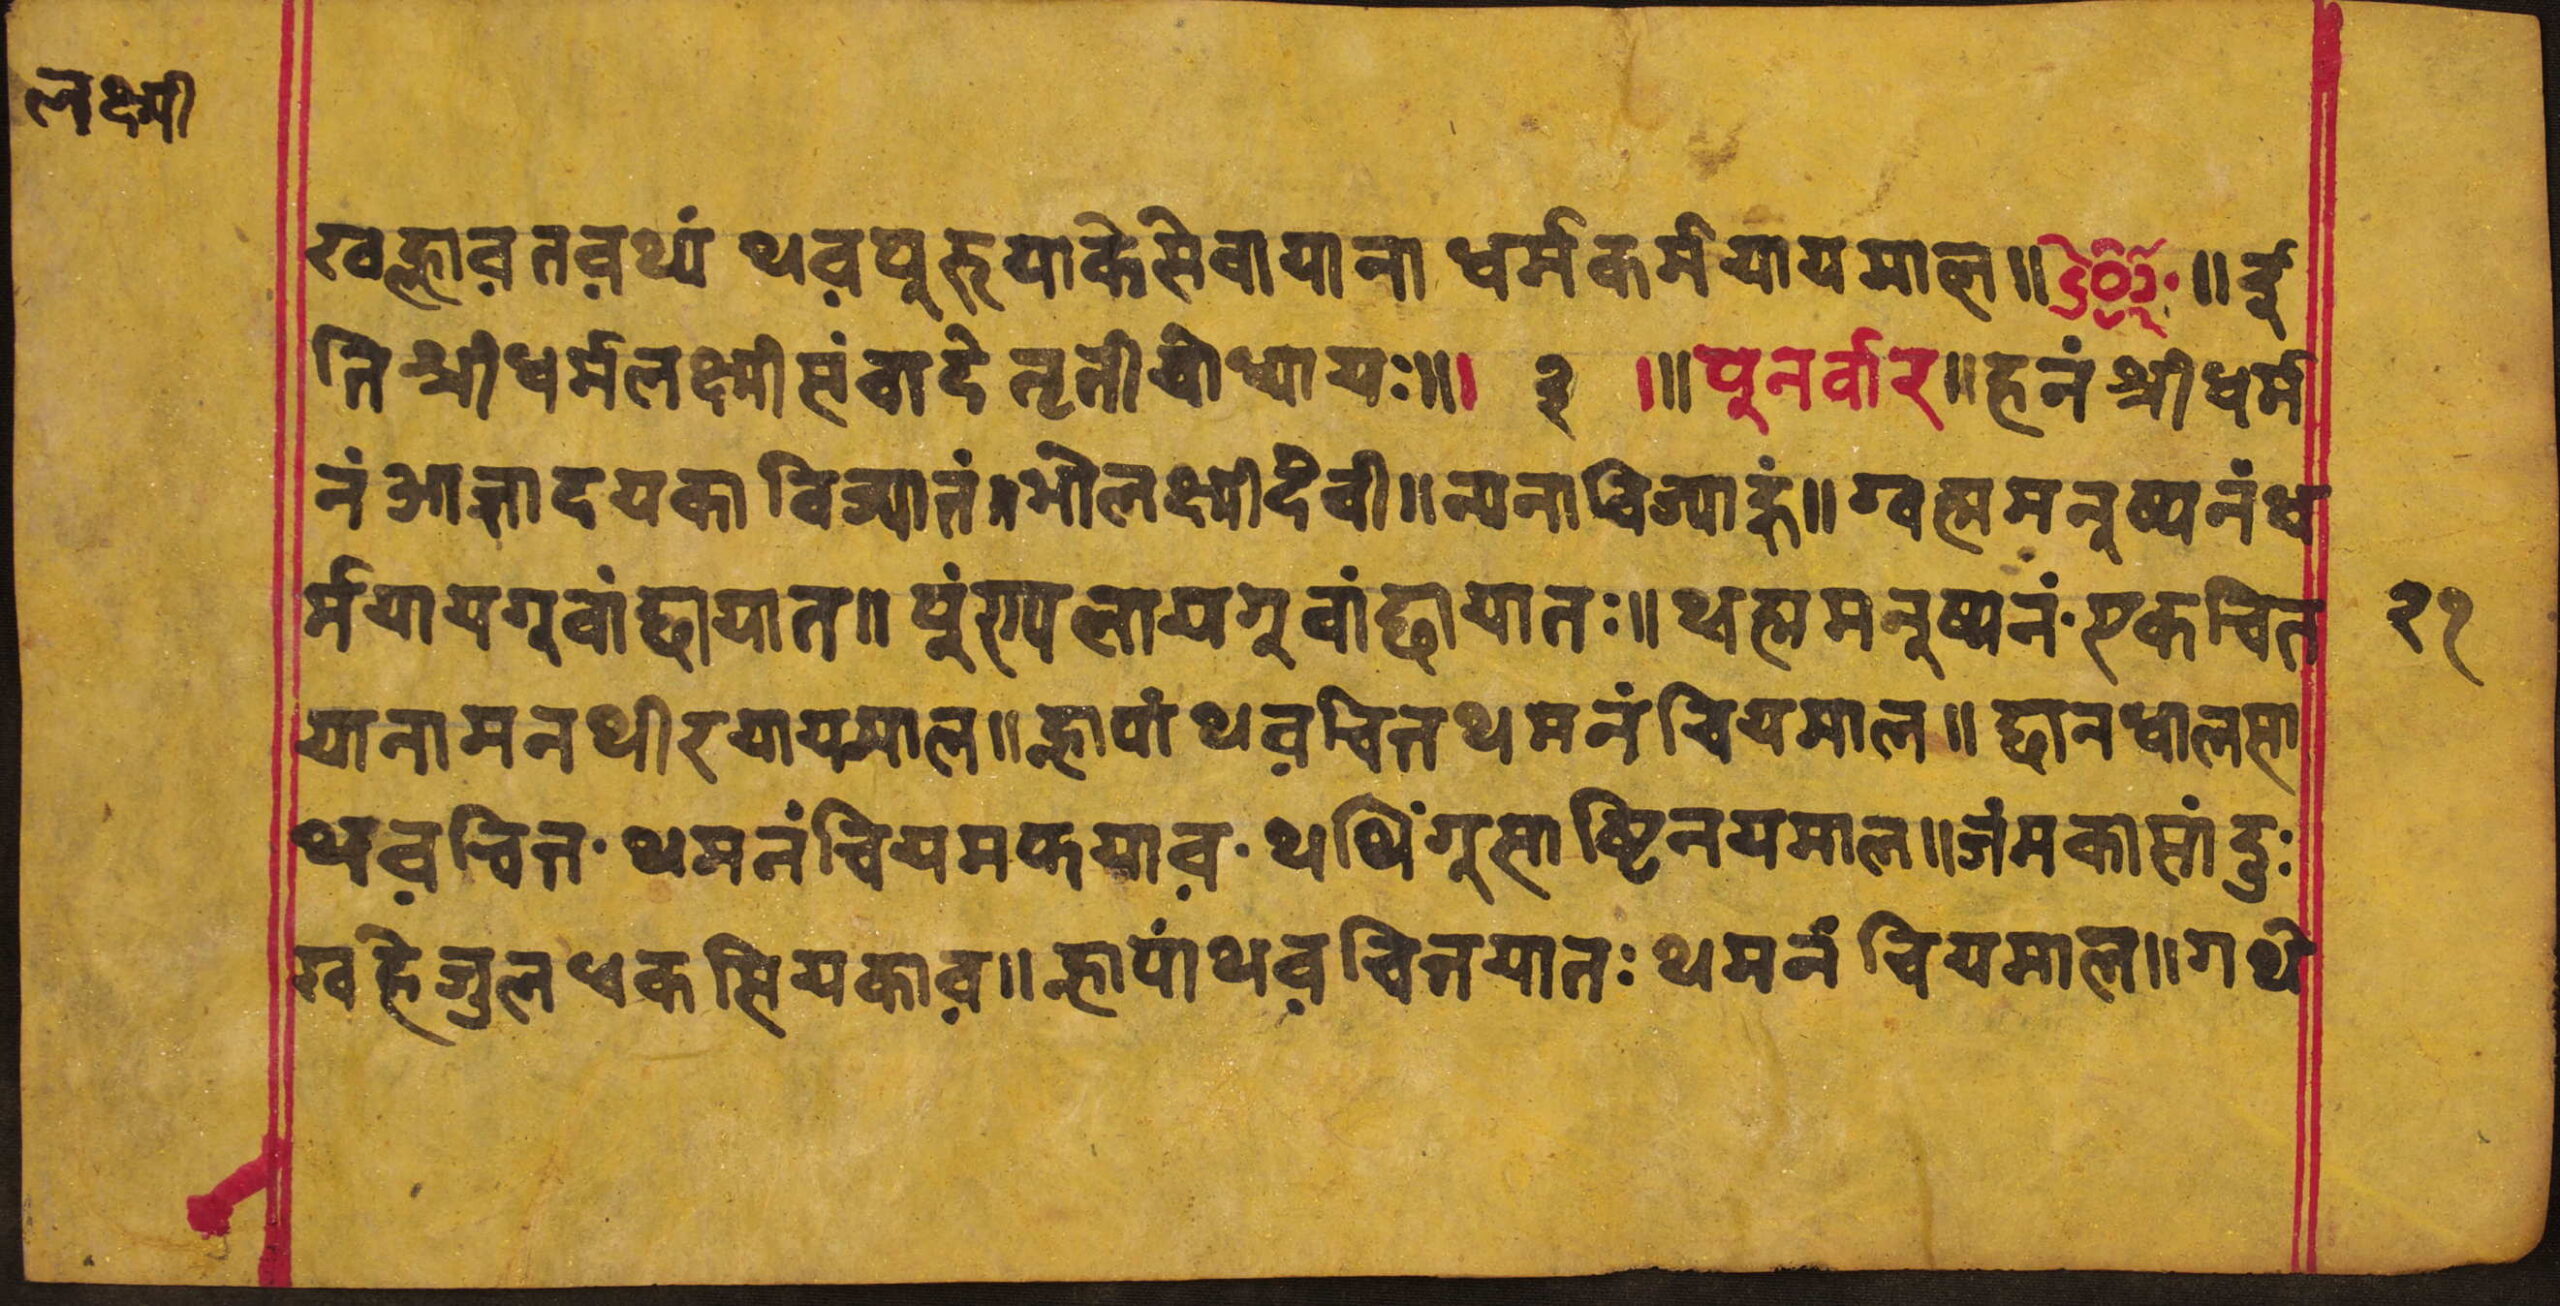 लक्ष्मी
ख्वह्मावतवथ्यं थवपुरुषयाके सेवायाना धर्मकर्मयायमाल॥ ॥इ
ति श्रीधर्मलक्ष्मीसंवादे तृतीयोध्यायः॥। ३ ।॥पुनर्वार॥हनं श्रीधर्म
नं आज्ञादयका विज्यातं॥भोलक्ष्मीदेवी॥न्यनाविज्याहुं॥ग्वह्ममनुष्यनं ध
र्मयायगुवांछायात॥ पुंण्यलायगुवांछायातः॥थह्ममनुष्यनं·एकचित
यानामनथीरयायमाल॥ह्नापां थवचित्तथमनं चियमाल॥ छानधालसा
थवचित्त·थमनंचियमफयाव·थथिंगुसाष्टिनयमाल॥जंमकासांदुः
ख्वहेजुलधकसियकाव॥ह्नापांथवचित्तयातः थमनं चियमाल॥गथे
२१